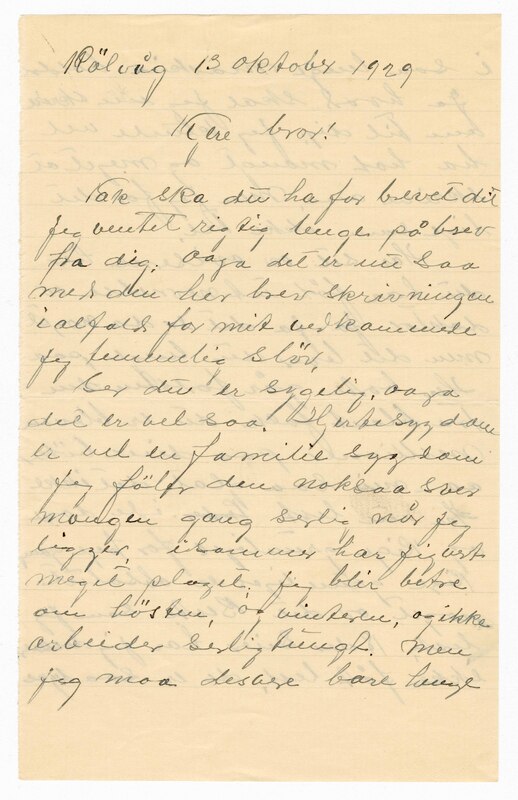 Kölvåg 13 oktober 1929
Kjere bror!
Tak ska du ha for brevet dit
jeg ventet rigtig lenge på brev
fra dig. Oaza det er nu saa
med den her brev skrivningen
ialfald for mit vedkommende
jeg temmelig slöv,
Ser du er sygelig, oaza
det er vel saa. Hjertesygdom
er vel en familie sygdom
jeg föler den noksaa svær
mangen gang serlig når jeg
ligger, isommer har jeg vert
meget plaget, jeg blir betre
om hösten, og vinteren, og ikke
arbeider serlig tungt. Men
jeg maa desvere bare henge